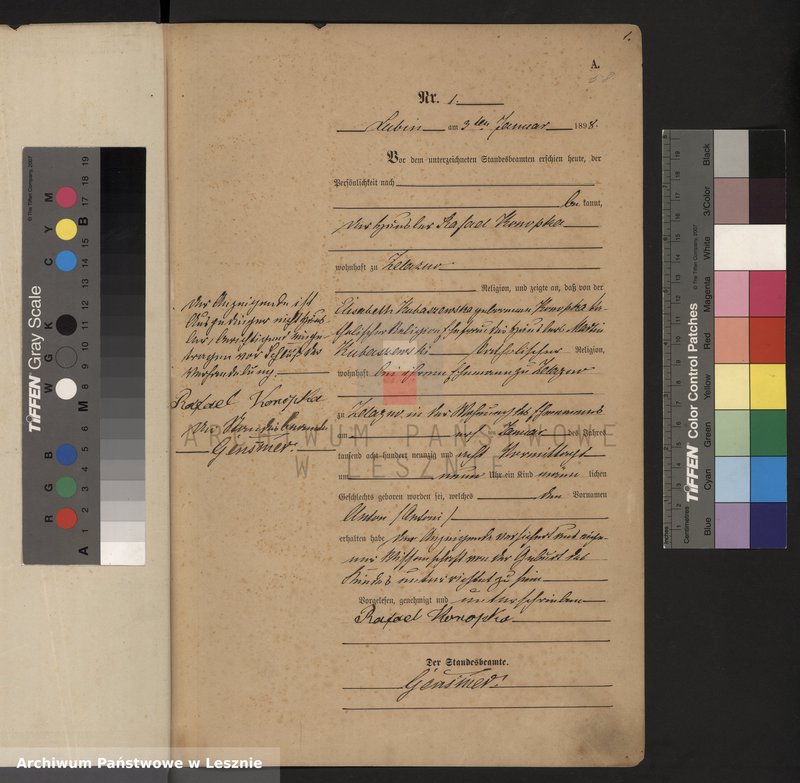 1.
A.
Nr. 1.
Lubin am 3ten Januar 1898.
Vor dem unterzeichneten Standesbeamten erschien heute, der
Persönlichkeit nach
be kannt,
der Häusler Rafael Konopka
wohnhaft zu Zelazno
Religion, und zeigte an, daß von der
Elisabeth Kubaszewska geborenen Konopka ka-
tholischer Religion Ehefrau des Häuslers Martin
Kubaszewski katholischer Religion,
wohnhaft bei ihrem Ehemann zu Zelazno
zu Zelazno in der Wohnung des Ehemannes
am ersten Januar des Jahres
tausend acht hundert neunzig und acht Vormittags
um neun Uhr ein Kind männ lichen
Geschlechts geboren worden sei, welches den Vornamen
Anton /Antoni/
erhalten habe. Der Anzeigende versichert aus eige-
ner Wissenschaft von der Geburt des
Kindes unterrichtet zu sein
Vorgelesen, genehmigt und unterschrieben
Rafael Konopka
Der Standesbeamte.
Gensmer.
Der Anzeigende ist
nicht Häus-
ler,
vor Schluß der
Verhandlung.
Rafael Konopka
Der Standesbeamte
Gensmer.
ARCHIWUM PAŃSTWOWE
W LESZNIE
Archiwum Państwowe w Lesznie
TIFFEN Gray Scale
© The Tiffen Company, 2007
R G B W G K C Y M
A 1 2 3 4 5 6 M 8 9 10 11 12 13 14 15 B 17 18 19
TIFFEN Color Control Patches
© The Tiffen Company, 2007
Inches
Centimetres
Blue Cyan Green Yellow Red Magenta White 3/Color Black